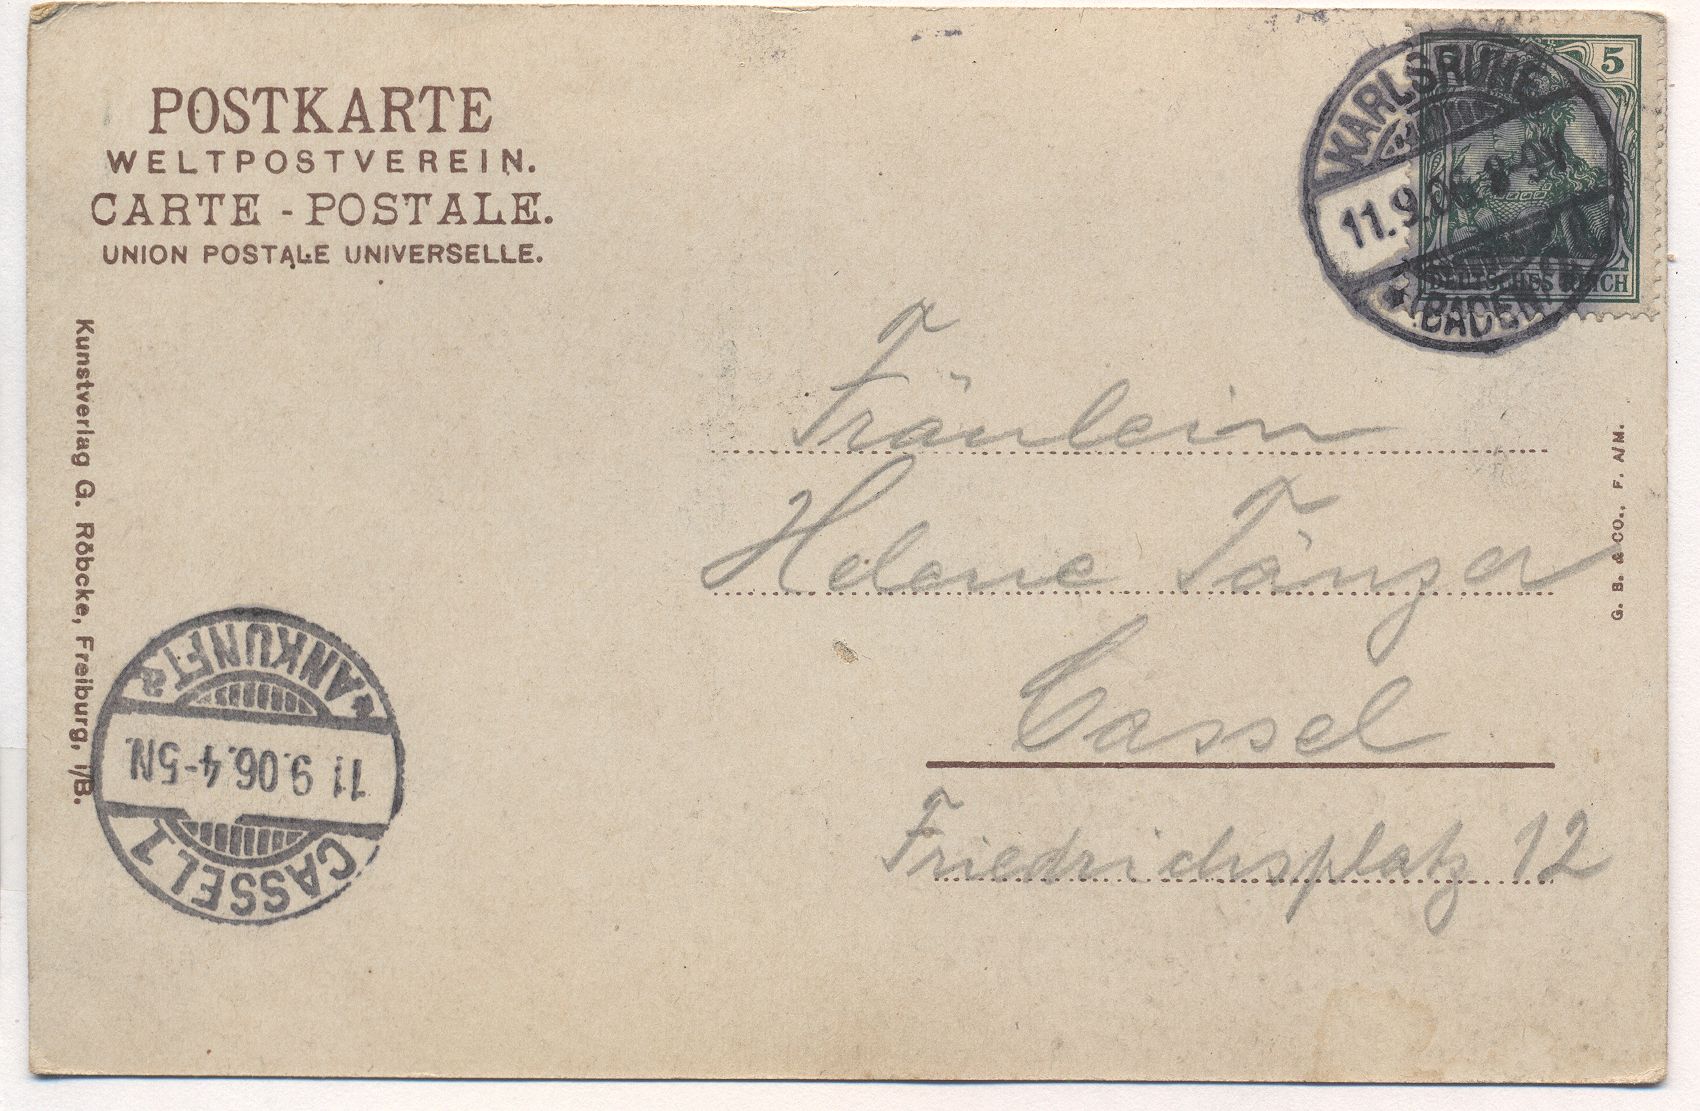 POSTKARTE
WELTPOSTVEREIN.
CARTE - POSTALE.
UNION POSTALE UNIVERSELLE.
KARLSRUHE
11.9.06. 8-9V
* (BADEN)
5
DEUTSCHES REICH
Kunstverlag G. Röbcke, Freiburg, i/B.
Fräulein
Helene Tänzer
Cassel
Friedrichsplatz 12
G. B. & CO., F. A/M.
CASSEL 1
11 9.06.4-5N.
* ANKUNFT a